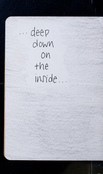 ...deep
down
on
the
inside